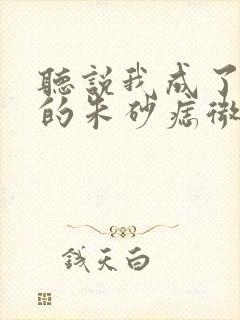 聽說我成了
的朱砂痣微
钱天白